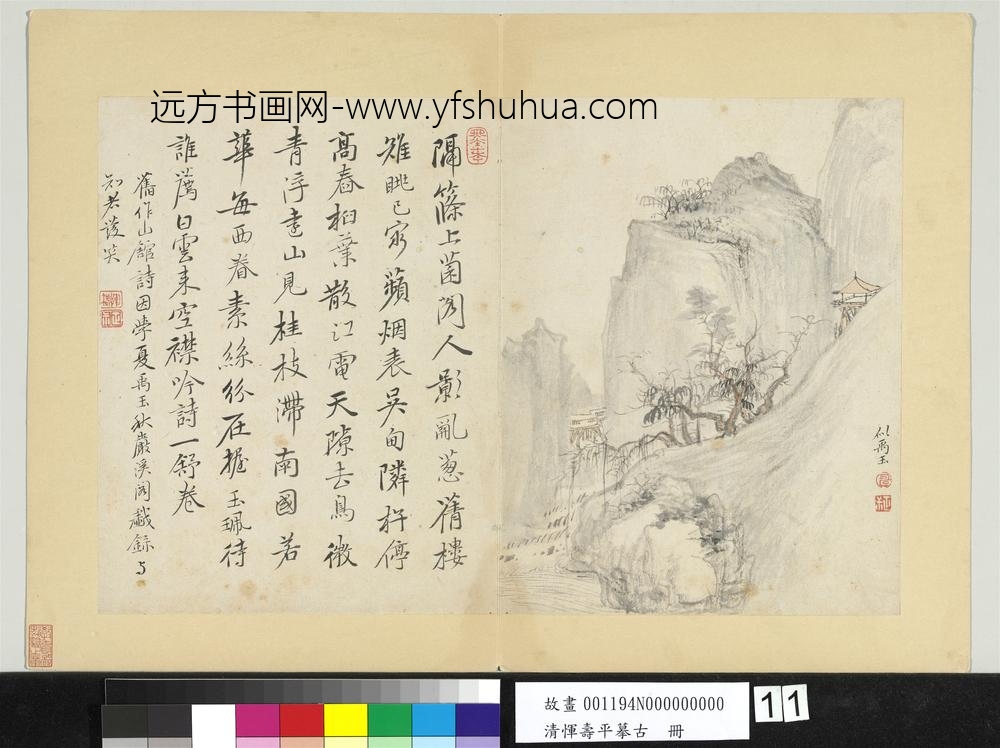 远方书画网-www.yfshuhua.com
隔篠上菌閣人影亂葱蒨樓
雉眺已窮蘋烟表吳甸隣杵停
高舂桕葉散江電天隙去鳥微
青浮遠山見桂枝滯南國若
華每西眷素絲紛在握玉珮待
誰薦日雲来空襟吟詩一舒卷
舊作山館詩因学夏禹玉秋巖溪閣戲錄与
知老發笑
似禹玉
故畫 001194N000000000
清惲壽平摹古 冊
11